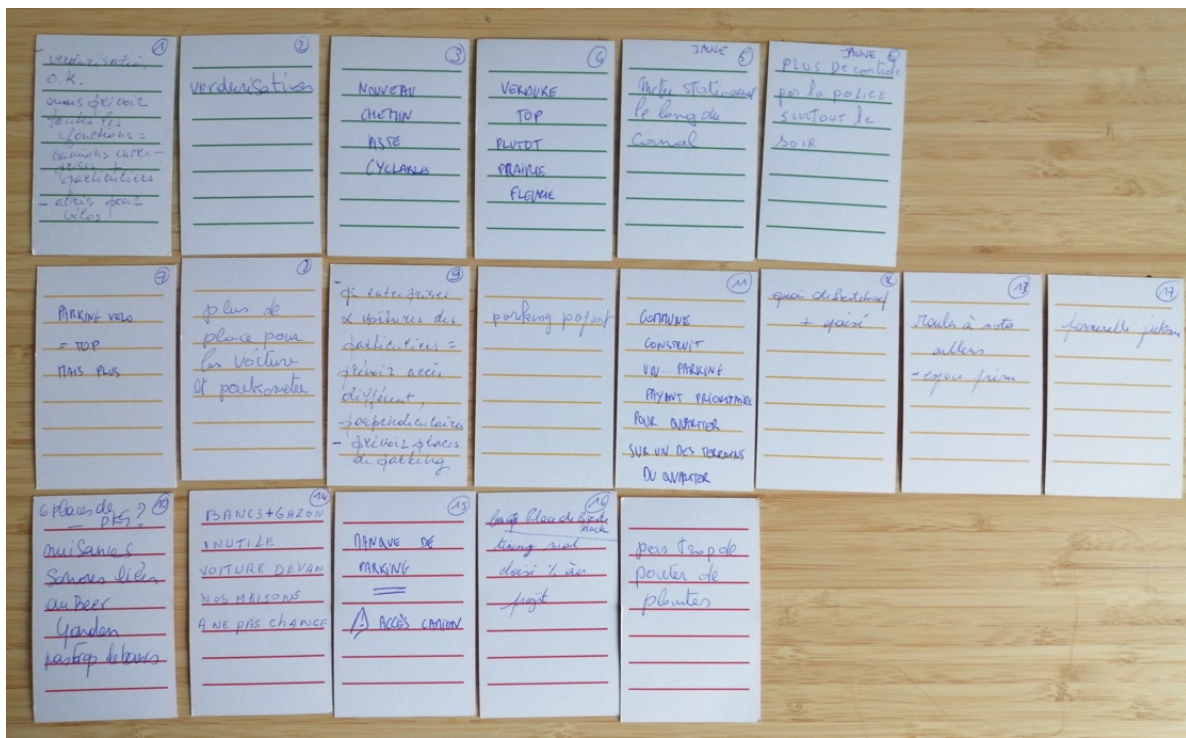 1
verdurisation
O.K.
mais prévoir
toutes les
fonctions =
camions entre-
prises +
particuliers
- abris pour
vélos
2
verdurisation
3
NOUVEAU
CHEMIN
PISTE
CYCLABLE
4
VERDURE
TOP
PLUTOT
PRAIRIE
FLEURIE
JAUNE 5
Mettre stationnement
le long du
Canal
JAUNE 6
PLUS De controle
par la police
SURTOUT le
SOIR
7
PARKING VELO
= TOP
MAIS PLUS
8
plus de
place pour
les voiture
et parkometer
9
- entreprises
& voitures des
particuliers =
prévoir accès
différent,
perpendiculaires
- prévoir places
de parking
parking payant
11
COMMUNE
CONSTRUIT
UN... PARKING
PAYANT PRIORITAIRE
POUR QUARTIER
SUR UN DES TERRAINS
DU QUARTIER
quai de
+ apaisé
13
Route à
ailleurs
17
passerelle
6 places de
PKG ? 10
nuisances
Sonores liées
au Beer
Garden
pas trop de bancs
14
BANCS+GAZON
INUTILE
VOITURE DEVAN
NOS MAISONS
A NE PAS CHANGE
15
MANQUE DE
PARKING
ACCÈS CAMION
16
timing mal
choisi % au
projet
pas trop de
de
plantes